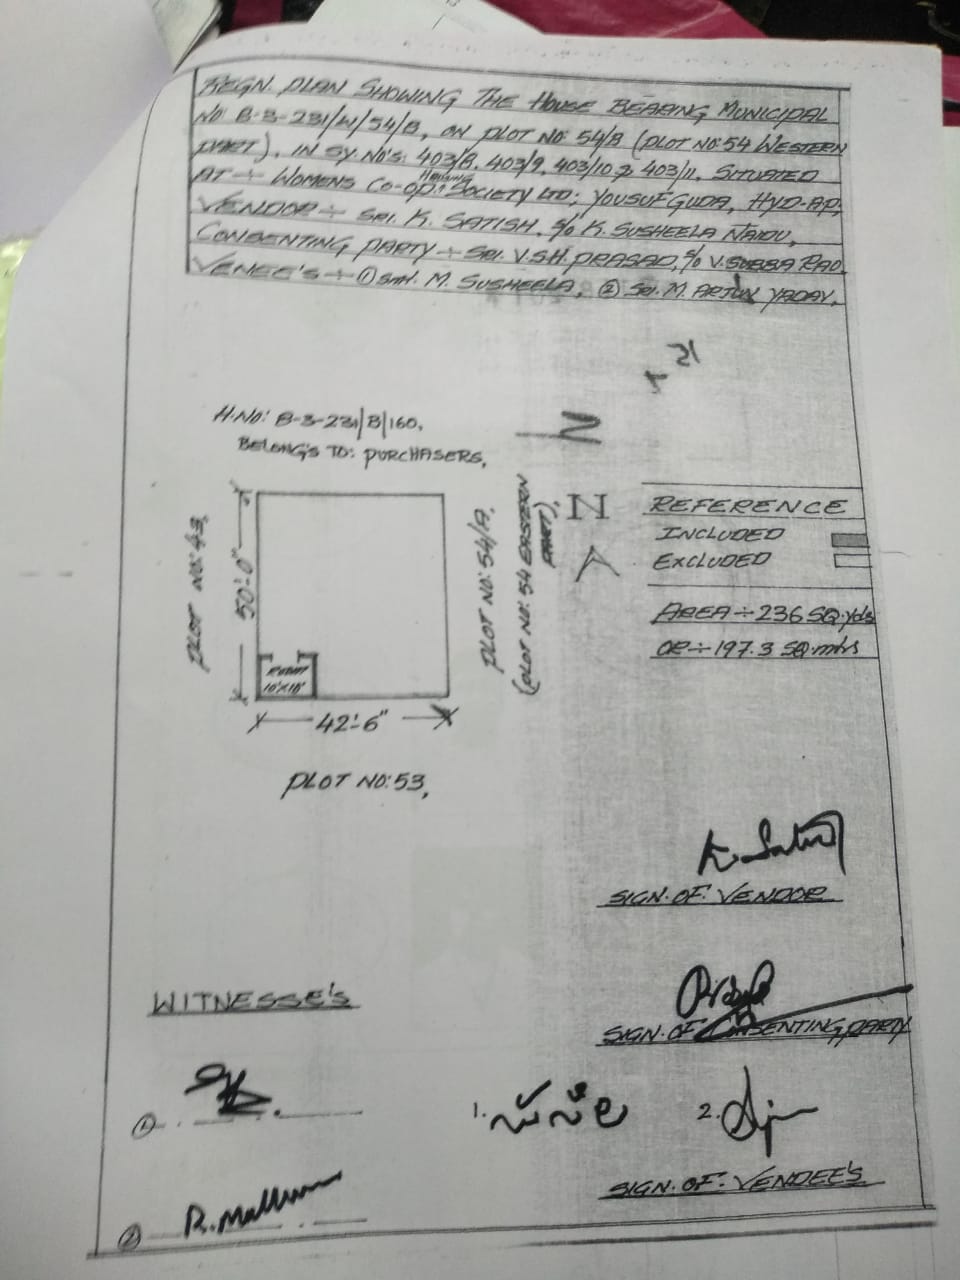 REGN. PLAN SHOWING THE HOUSE BEARING MUNICIPAL
NO 8-3-231/W/54/B, ON PLOT NO: 54/B (PLOT NO: 54 WESTERN
PART), IN SY. NO'S: 403/8, 403/9, 403/10 & 403/11, SITUATED
AT ÷ WOMENS CO-OP: HOUSING SOCIETY LTD; YOUSUFGUDA, HYD-AP,
VENDOR ÷ SRI. K. SATISH, S/o K. SUSHEELA NAIDU,
CONSENTING PARTY ÷ SRI. V.S.H. PRASAD, S/o V. SUBBA RAO
VENEE'S ÷ ① Smt. M. SUSHEELA, ② SRI. M. ARJUN YADAV.
N
H.NO: 8-3-231/B/160,
BELONG'S TO: PURCHASERS,
PLOT NO: 43,
50'-0"
ROOM
10'X10'
42'-6"
PLOT NO: 54/A,
(PLOT NO: 54 EASTERN
PART),
PLOT NO: 53,
N
REFERENCE
INCLUDED
EXCLUDED
AREA ÷ 236 SQ.yds
OR ÷ 197.3 SQ.mtrs
K. Satish
SIGN. OF. VENDOR
SIGN. OF CONSENTING PARTY
WITNESSE'S
①
②
1.
2.
SIGN. OF. VENDEE'S